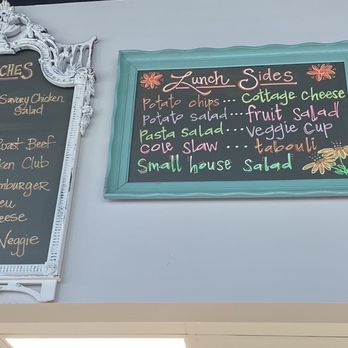 CHES
Savory Chicken
Salad
Roast Beef
ken Club
mburger
eu
eese
Veggie
Lunch Sides
Potato chips... Cottage Cheese
Potato salad... fruit Salad
Pasta salad... veggie Cup
Cole Slaw ... tabouli
Small house Salad